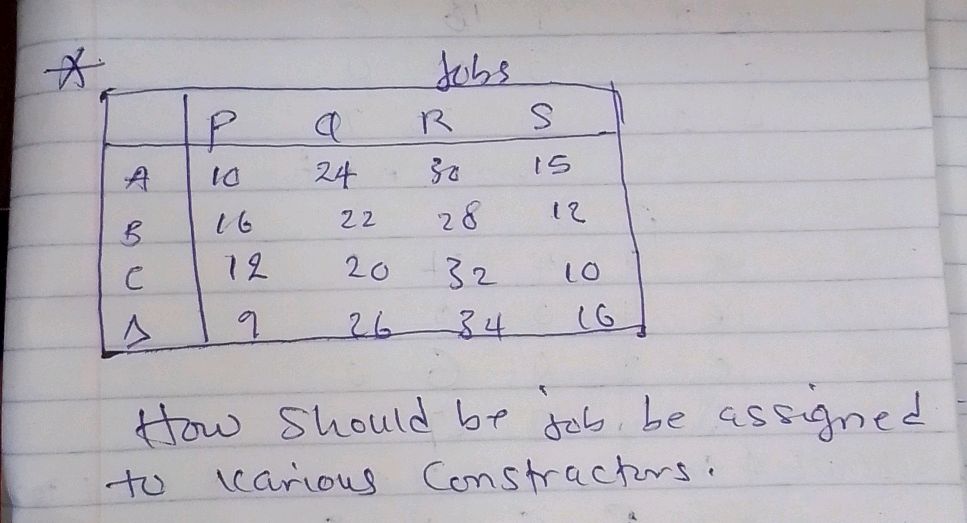 Jobs
P Q R S
A 10 24 30 15
B 16 22 28 12
C 12 20 32 10
D 9 26 34 16
How should be job be assigned
to various Constractors.